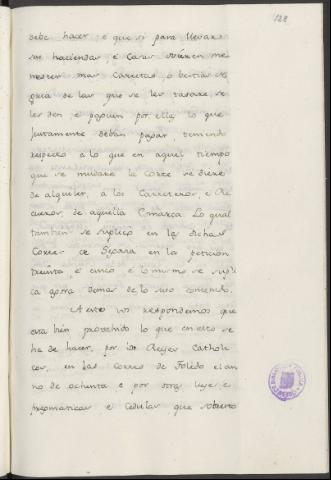 128
debe hacer: e que si para llevar
sus haciendas, e casas ovieren me
nester mas carretas, o bestias
de las que se les tasare, se
les den, e paguen por ellas lo que
justamente deban pagar, teniendo
respecto a lo que en aquel tiempo
que se mudare la Corte se diere
de alquiler, a los Carreteros, e Re
cueros, de aquella Comarca. Lo qual
tambien se suplicó en las dichas
Cortes de Segovia en la petición
treinta e cinco e lo mismo se supli
ca agora demas de lo suso contenido.
A esto vos respondemos que
esta bien provehido lo que en esto se
ha de hacer, por los Reyes Catholi
cos, en las Cortes de Toledo el an
no de ochenta e por otras leyes e
pregmaticas e Cedulas, que sobre